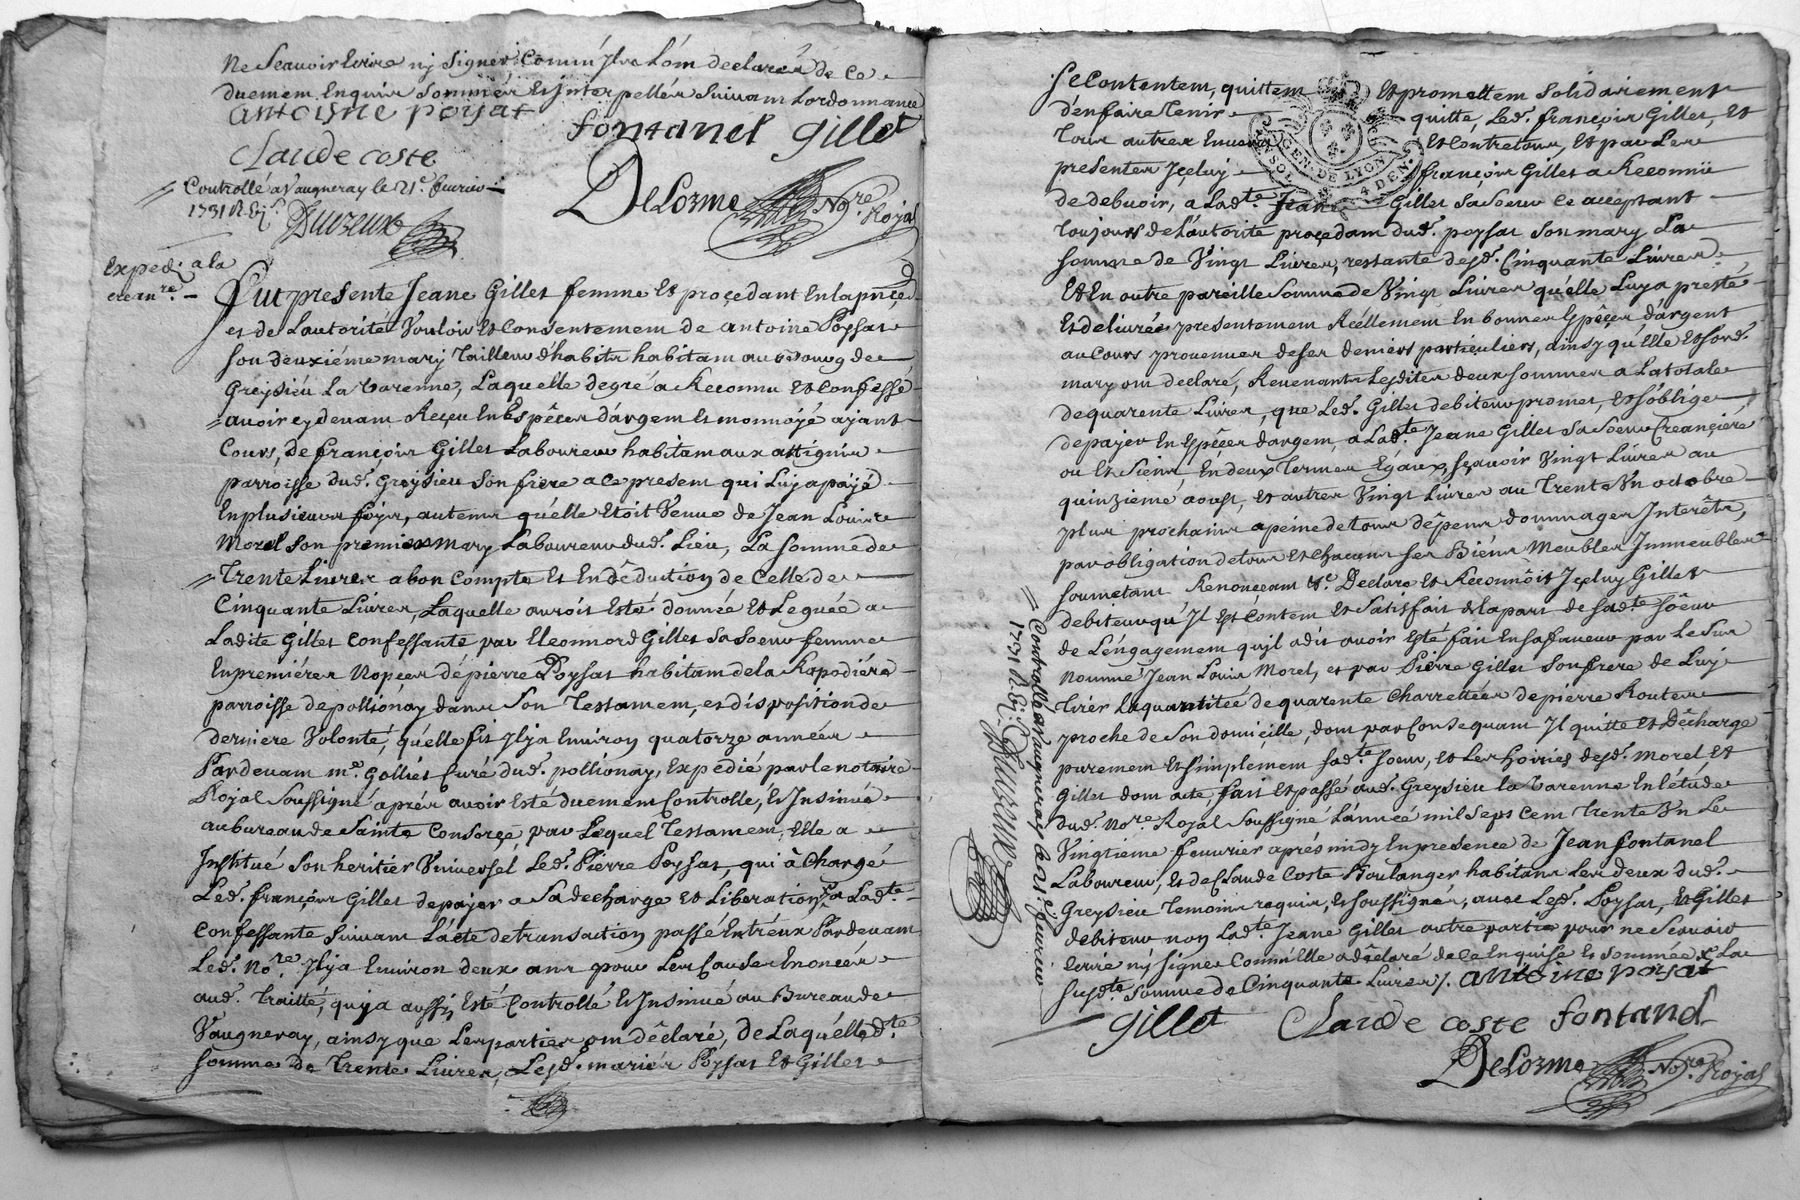 Ne Scauoir Ecrire nj Signer Comm' Jls Lom declarés de Ce
duemem Enquis Sommés Et Interpellés Suiuam Lordonnance
antoisne poysat
fontanel gillet
Claude coste
DeLorme No.re Royal
Controllé a Vaugneray le 21e. feurier
1731 R
Expedié a la
crean.re
Fut presente Jeane Gillet femme Et proçedant En la pn̄ce
et de Lautorité Vouloir Et Consentemem de antoine Poysat
son deuxiéme marij Tailleur d'habits habitam au Bourg de
Greysieu La Varenne, Laquelle de gré a Reconnu Et Confessé
auoir cy deuam Reçeu En Espêces d'argem Et monnoyé ayant
Cours, de françois Gillet Laboureur habitam aux attignies
parroisse dud. Greysieu Son frere a ce present qui Luy a payé
En plusieurs foys, autems qu'elle Etoit Venue de Jean Louis
Morel Son premier Mary Laboureur dud. Lieu, La Somme de
Trente Liures a bon Compte Et En déduction de Celle de
Cinquante Liures, Laquelle auroit Esté donnée Et Leguée a
Ladite Gillet Confessante par Eleonord Gillet Sa Soeur femme
En premieres Nopces de pierre Poysat habitam de la Rapodiére
parroisse de pollionay dans Son Testamem, et disposition de
derniere Volonté, qu'elle fit Jl y a Enuiron quatorze années
Pardeuam m.e Golliet Curé dud. pollionay, Expedié par le notaire
Royal Soussigné aprés auoir Esté duemem Controllé, Et Insinué
au bureau de Sainte Consorçe, par Lequel Testamem, Elle a
Institué Son heritier Vniuersel Led. Pierre Poysat, qui à Chargé
Led. françois Gillet de payer a Sa decharge Et Liberation a Lad.te
Confessante Suiuam L'acte de transaction passé Entr'eux Pardeuam
Led. No.re Jl y a Enuiron deux ans pour Les Causes Enoncées
aud. Traitté, qui a aussy Esté Controllé Et Insinué au Bureau de
Vaugneray, ainsy que Les parties om déclaré, de Laquelled.te
Somme de Trente Liures, Lesd. mariés Poysat Et Gillet
Se Contentem, quittem Et promettem Solidairement
d'en faire Tenir quitte, Led. françois Gillet, Et
Tous autres Enuers Et Contre tous, Et par Les
presentes Jceluy françois Gillet a Reconnü
de debuoir, a Lad.te Jeane Gillet Sa Soeur Ce acceptant
Toujours de L'autorité proçedam dud. poysat Son mary La
Somme de Vingt Liures, restante desd. Cinquante Liures
Et En outre pareille Somme de Vingt Liures qu'elle Luy a presté
Et deliurée presentemem Réellemem En bonnes Espêçes d'argent
au Cours prouenues de Ses deniers particuliers, ainsy qu'Elle Et Sond.
mary om declaré, Reuenants Lesdites deux Sommes a La totale
de quarante Liures, que Led. Gillet debiteur promet, Et S'oblige
de payer En Espêces d'argem, a Lad.te Jeane Gillet Sa Soeur Creançiere
ou Et Siens En deux Termes Egaux, Sçauoir Vingt Liures au
quinziéme aoust, Et autres Vingt Liures au Trente Vn octobre
plus prochains a peine de tous dépens dommages Interêts,
par obligation de tous Et chacuns Ses Biens Meubles Immeubles
Soumettans Renonçeans &c. Declare Et Reconnôit Jceluy Gillet
debiteur qu'Jl Est Contem Et Satisfait de la part de Sad.te Soeur
de L'engagemem qu'il a dit auoir Esté fait En Sa faueur par Le Sus
Nommé Jean Louis Morel, et par Pierre Gillet Son frere de Luy
Tirer La quantitée de quarante Charrettées de pierre Routes
proche de Son domiçille, dom par Consequam Jl quitte Et Décharge
puremem Et Simplemem Sad.te Soeur, Et Les hoiries desd. Morel Et
Gillet dom acte, fait Et passé aud. Greysieu la Varenne En L'étude
dud. No.re Royal Soussigné L'année mil Sept Cem Trente Vn Le
Vingtiéme feuurier aprés midy En presence de Jean fontanel
Laboureur, Et de Claude Coste Boulanger habitans Les deux dud.
Greysieu Temoins requis, Et Soussignés, auec Lesd. Poysat, Et Gillet
debiteur non Lad.te Jeane Gillet autre partie pour ne Scauoir
Ecrire nj Signer Comm'Elle a déclaré de Ce Enquise Et Sommée La
Susd.te Somme de Cinquante Liures /. antoine poysat
gillet Claude coste fontanel
DeLorme No.re Royal
Controllé a Vaugneray Le 21e. feurier
1731 R
GEN. DE LYON
4 DEN.